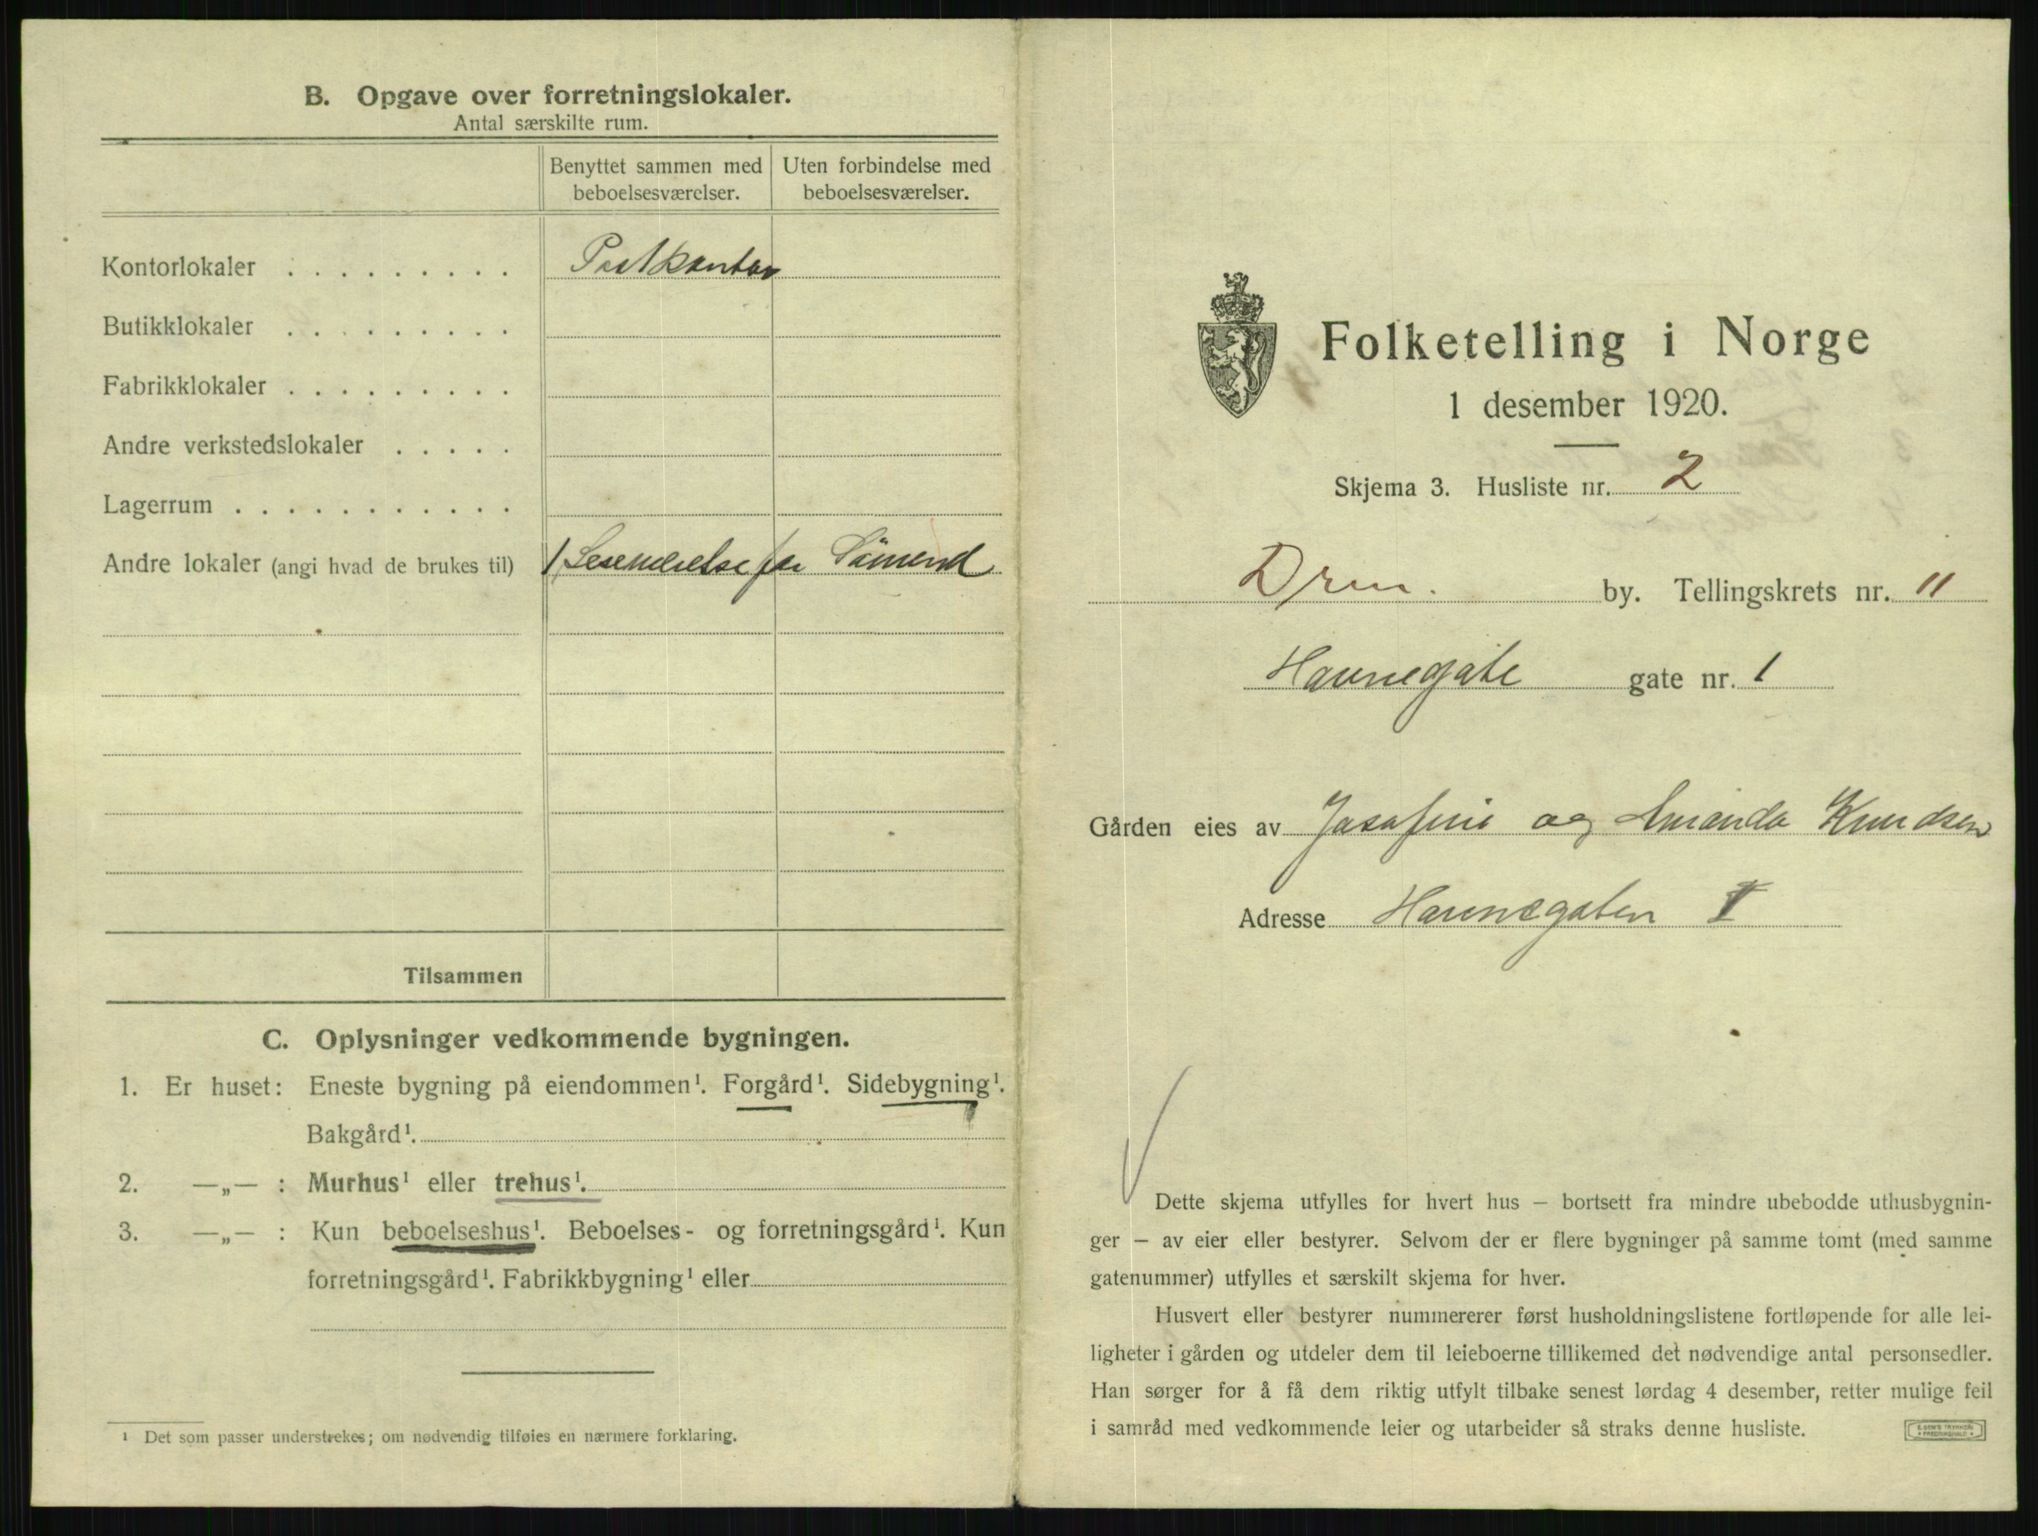 B. Opgave over forretningslokaler.
Antal særskilte rum.
Benyttet sammen med beboelsesværelser.
Uten forbindelse med beboelsesværelser.
Kontorlokaler . . . . . . . . . Postkontor
Butikklokaler . . . . . . . . .
Fabrikklokaler . . . . . . . . .
Andre verkstedslokaler . . . . .
Lagerrum . . . . . . . . . . . .
Andre lokaler (angi hvad de brukes til) 1 Leseværelse for Sömend
Tilsammen
C. Oplysninger vedkommende bygningen.
1. Er huset: Eneste bygning på eiendommen¹. Forgård¹. Sidebygning¹.
Bakgård¹.
2. —„— : Murhus¹ eller trehus¹.
3. —„— : Kun beboelseshus¹. Beboelses- og forretningsgård¹. Kun
forretningsgård¹. Fabrikkbygning¹ eller
¹ Det som passer understrekes; om nødvendig tilføies en nærmere forklaring.
Folketelling i Norge
1 desember 1920.
Skjema 3. Husliste nr. 2
Drm. by. Tellingskrets nr. 11
Havnegate gate nr. 1
Gården eies av Josefine og Amanda Knudsen
Adresse Havnegaten 1
Dette skjema utfylles for hvert hus — bortsett fra mindre ubebodde uthusbygnin-
ger — av eier eller bestyrer. Selvom der er flere bygninger på samme tomt (med samme
gatenummer) utfylles et særskilt skjema for hver.
Husvert eller bestyrer nummererer først husholdningslistene fortløpende for alle lei-
ligheter i gården og utdeler dem til leieboerne tillikemed det nødvendige antal personsedler.
Han sørger for å få dem riktig utfylt tilbake senest lørdag 4 desember, retter mulige feil
i samråd med vedkommende leier og utarbeider så straks denne husliste.